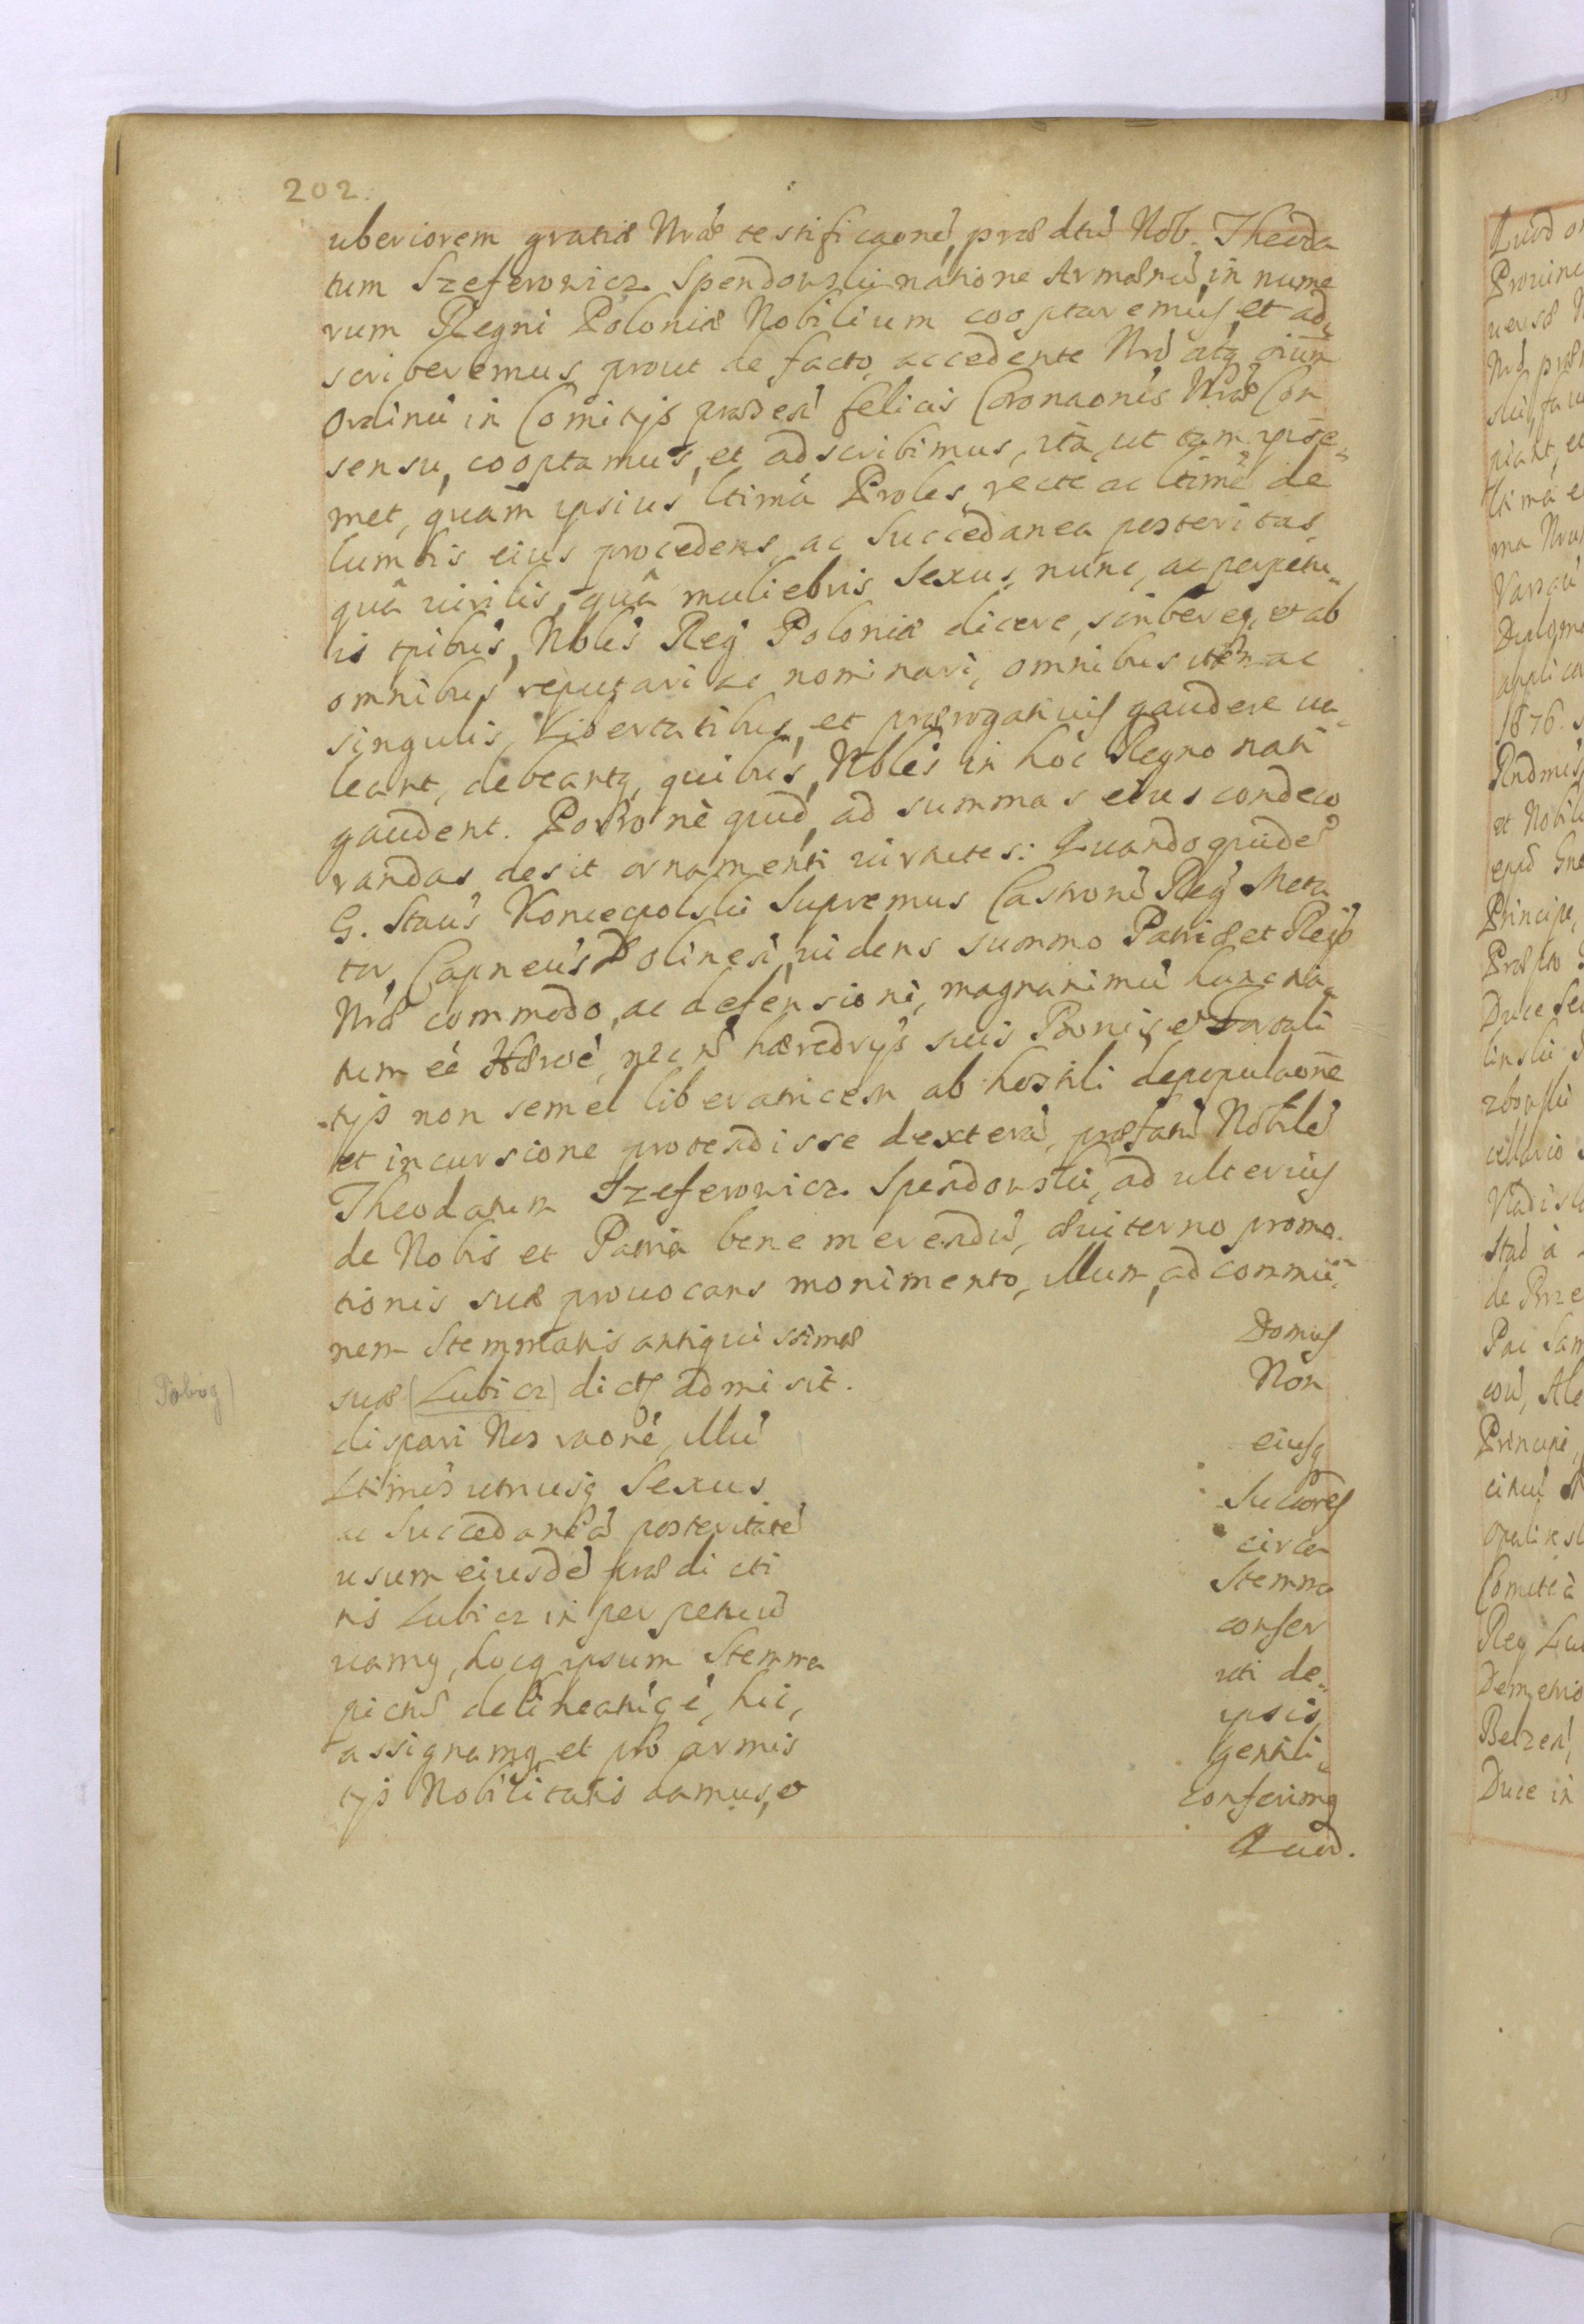 202.
uberiorem gratiæ Nræ testificaonē, prædtū Nob. Theoda
tum Szeferowicz Spendowski natione Armænū, in nume
rum Regni Poloniæ Nobilium cooptaremus, et ad
scriberemus prout de facto, accedente Nrō atq oīum
Ordinū in Comitijs præsen̄ felicis Coronaonis Nræ Con
sensu, cooptamus, et adscribimus, ità, ut tam ipse„
met, quàm ipsius ltima Proles, rectè ac ltimè de
lumbis eius procedens, ac Succedanea posteritas,
quâ virilis, quâ muliebris Sexus, nunc, ac perpetu„
is tpibus, Nbles Regī Poloniæ dicere, scribereq, et ab
omnibus reputari ac nominari, omnibus item ac
singulis, Libertatibus, et prærogativis gaudere va„
leant, debeantq, quibus, Nbles in hoc Regno nati
gaudent. Porro nè quid, ad summas eius condeco
randas desit ornamenti virtutes: Quandoquidē
G. Staus Koniecpolski Supremus Castronū Regī Meta
tor, Capneus Dolinen̄, videns summo Patriæ et Reip
Nræ commodo, ac defensioni, magnanimū hunc na„
tum eē Heroē, nec n̄ hæredrijs suis Bonis, et
tijs non semel liberatricem ab hostili depopulaone
et incursione protendisse dexterā, præfatū Nobilē
Theodatum Szeferowicz Spendowski, ad ulterius
de Nobis et Patria bene merendū, æviterno promo„
tionis suæ provocans monimento, illum, ad commu„
nem Stemmatis antiquissimæ Domus
suæ (Lubicz) dictæ admisit. Non
Pobog)
dispari Nos raone, illū eiusq
Ltimos utriusq Sexus Succores
ac Succedaneā posteritatē circa
usum eiusdē prædicti Stemma
tis Lubicz in perpetuū conser
vamq, hocq ipsum Stemma uti de„
pictū delineatūq ē, hic, ipsis
assignamq, et pro armis gentili„
tijs Nobilitatis damus, et conferimq
Quod.